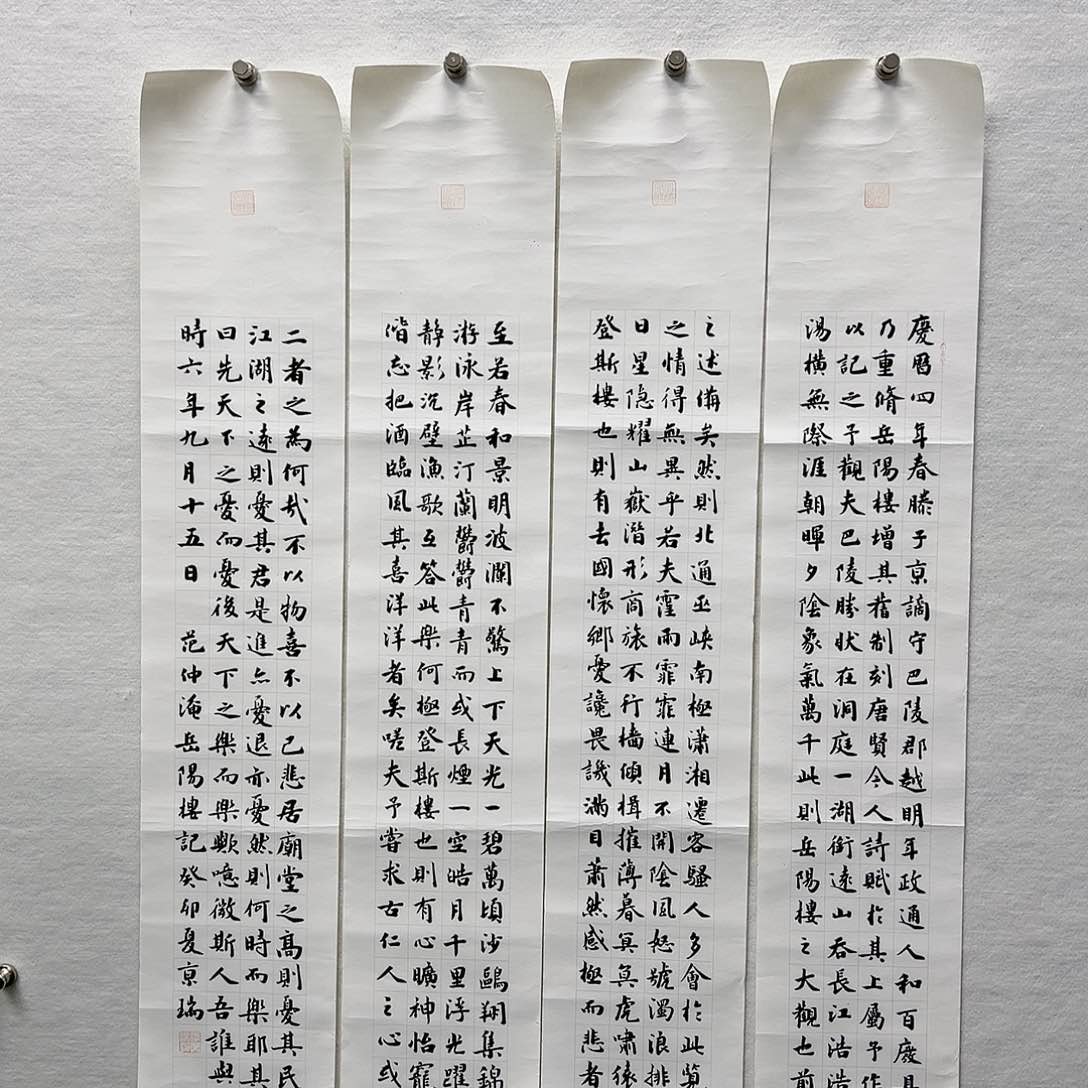 慶曆四年春滕子京謫守巴陵郡越明年政通人和百廢具
乃重脩岳陽樓增其舊制刻唐賢今人詩賦於其上屬予作
以記之予觀夫巴陵勝狀在洞庭一湖銜遠山吞長江浩浩
湯橫無際涯朝暉夕陰象氣萬千此則岳陽樓之大觀也前
之述備矣然則北通巫峽南極瀟湘遷客騷人多會於此覽
之情得無異乎若夫霪雨霏霏連月不開陰風怒號濁浪排
日星隱耀山嶽潛形商旅不行檣傾楫摧薄暮冥冥虎嘯猿
登斯樓也則有去國懷鄉憂讒畏譏滿目蕭然感極而悲者
至若春和景明波瀾不驚上下天光一碧萬頃沙鷗翔集錦
游泳岸芷汀蘭鬱鬱青青而或長煙一空皓月千里浮光躍
靜影沉璧漁歌互答此樂何極登斯樓也則有心曠神怡寵
偕忘把酒臨風其喜洋洋者矣嗟夫予嘗求古仁人之心或
二者之為何哉不以物喜不以己悲居廟堂之高則憂其民
江湖之遠則憂其君是進亦憂退亦憂然則何時而樂耶其
曰先天下之憂而憂後天下之樂而樂歟噫微斯人吾誰與
時六年九月十五日 范仲淹岳陽樓記癸卯夏京瑞